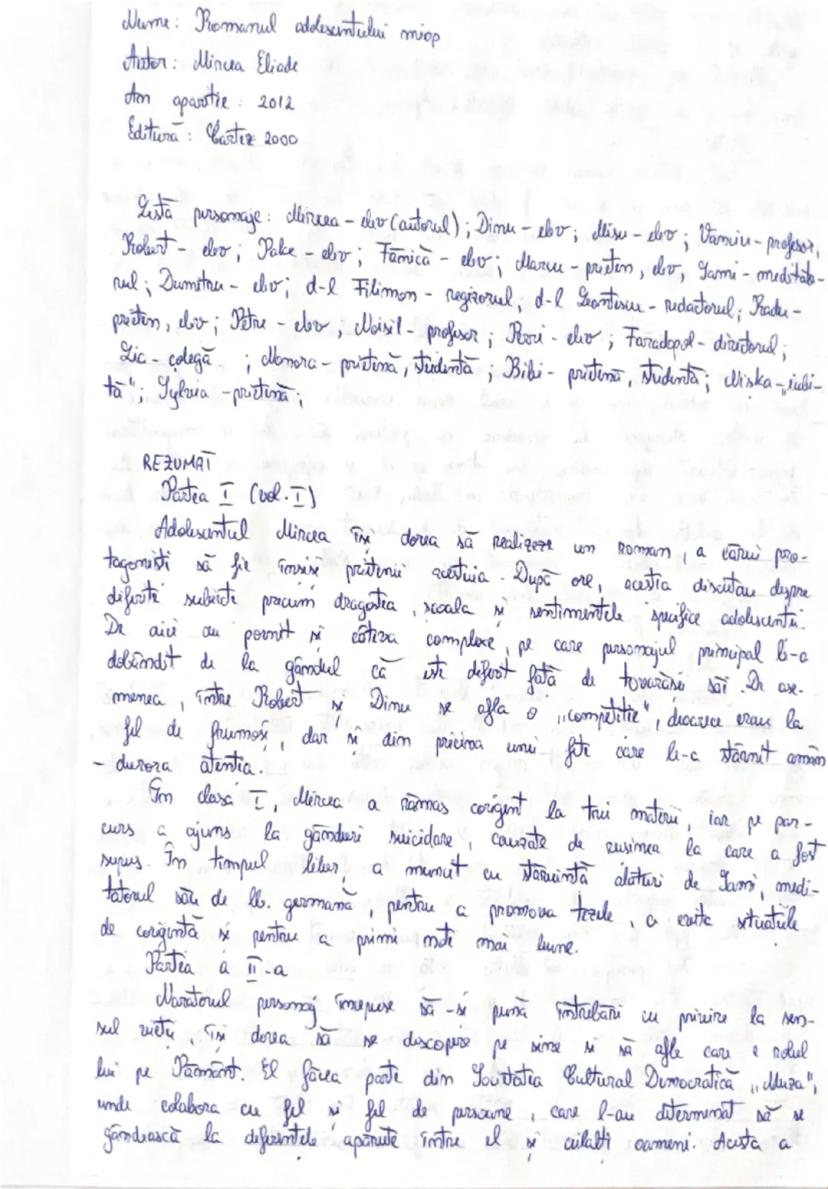 Nume: Romanul adolescentului miop
Autor: Mircea Eliade
An apariție: 2012
Editura: Cartex 2000
Listă personaje: Mircea - elev (autorul); Dinu - elev; Mișu - elev; Vanciu - profesor,
Robert - elev; Pake - elev; Fănică - elev; Marcu - prieten, elev, Sami - meditato-
rul; Dumitru - elev; d-l Filimon - regizorul; d-l Leontescu - redactorul; Radu -
prieten, elev; Petre - elev, Moisil - profesor; Peri - elev; Faradopol - directorul;
Lic - colegă ; Nonora - prietenă, studentă; Bibi - prietenă, studentă; Niska - „iubi-
tă"; Sylvia - prietenă;
REZUMAT
Partea I (vol. I)
Adolescentul Mircea își dorea să realizeze un roman, a cărui pro-
tagoniști să fie însiși prietenii acestuia. După ore, aceștia discutau despre
diferite subiecte precum dragostea, școala și sentimentele specifice adolescenței.
De aici au pornit și câteva complexe, pe care personajul principal le-a
dobândit de la gândul că este diferit față de tovarășii săi. De ase-
menea, între Robert și Dinu se afla o „competiție", deoarece erau la
fel de frumoși, dar și din pricina unei fete care le-a stârnit amân
- durora atenția.
În clasa I, Mircea a rămas corigent la trei materii, iar pe par-
curs a ajuns la gânduri suicidare, cauzate de rușinea la care a fost
supus. În timpul liber, a muncit cu stăruință alături de Sami, medi-
tatorul său de lb. germană, pentru a promova tezele, a evita situațiile
de corigență și pentru a primi note mai bune.
Partea a II-a
Naratorul personaj începuse să-și pună întrebări cu privire la sen-
sul vieții, își dorea să se descopere pe sine și să afle care e rolul
lui pe Pământ. El făcea parte din Societatea Cultural Democratică „Muza",
unde colabora cu fel și fel de persoane, care l-au determinat să se
gândească la diferențele apărute între el și ceilalți oameni. Acesta a